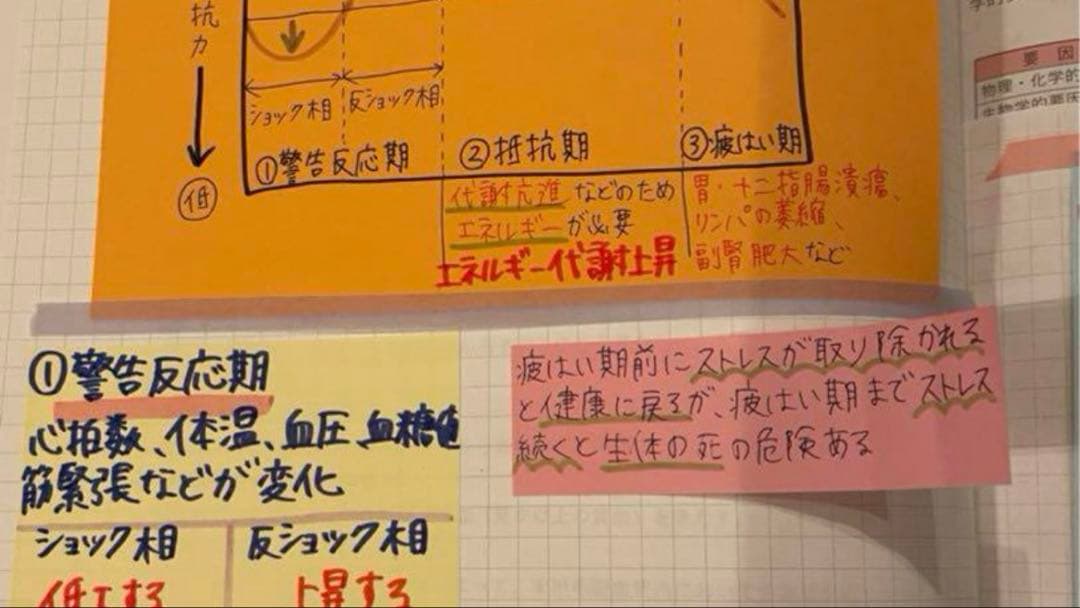 抗
力
低
ショック相
反ショック相
①警告反応期
②抵抗期
③疲はい期
代謝亢進などのため
エネルギーが必要
エネルギー代謝上昇
胃・十二指腸潰瘍、
リンパの萎縮、
副腎肥大など
要因
物理・化学的
生物学的要因
①警告反応期
心拍数、体温、血圧、血糖値
筋緊張などが変化
ショック相
反ショック相
低下する
上昇する
疲はい期前にストレスが取り除かれる
と健康に戻るが、疲はい期までストレス
続くと生体の死の危険ある